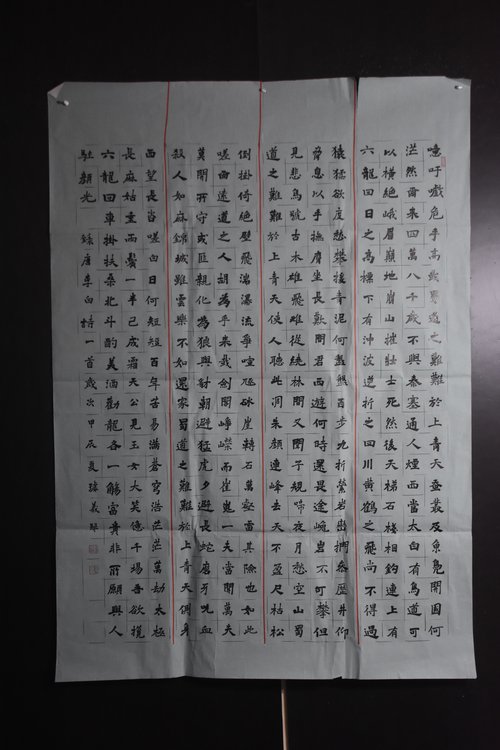 噫吁戲危乎高哉蜀道之難難於上青天蚕叢及魚鳧開國何
茫然爾來四萬八千歲不與秦塞通人煙西當太白有鳥道可
以橫絶峨眉巔地崩山摧壯士死然後天梯石棧相鈎連上有
六龍回日之高標下有沖波逆折之回川黄鶴之飛尚不得過
猿猱欲度愁攀援青泥何盤盤百步九折縈岩巒捫參歷井仰
脅息以手撫膺坐長歎問君西遊何時還畏途巉岩不可攀但
見悲鳥號古木雄飛雌從繞林間又聞子規啼夜月愁空山蜀
道之難難於上青天使人聽此凋朱顔連峰去天不盈尺枯松
倒掛倚絶壁飛湍瀑流爭喧豗砯崖轉石萬壑雷其險也如此
嗟爾遠道之人胡為乎來哉劍閣崢嶸而崔嵬一夫當關萬夫
莫開所守或匪親化為狼與豺朝避猛虎夕避長蛇磨牙吮血
殺人如麻錦城雖雲樂不如還家蜀道之難難於上青天側身
西望長咨嗟白日何短短百年苦易滿蒼穹浩茫茫萬劫太極
長麻姑垂兩鬢一半已成霜天公見玉女大笑億千場吾欲攬
六龍回車掛扶桑北斗酌美酒勸龍各一觴富貴非所願與人
駐顔光 錄唐李白詩一首歲次甲辰夏